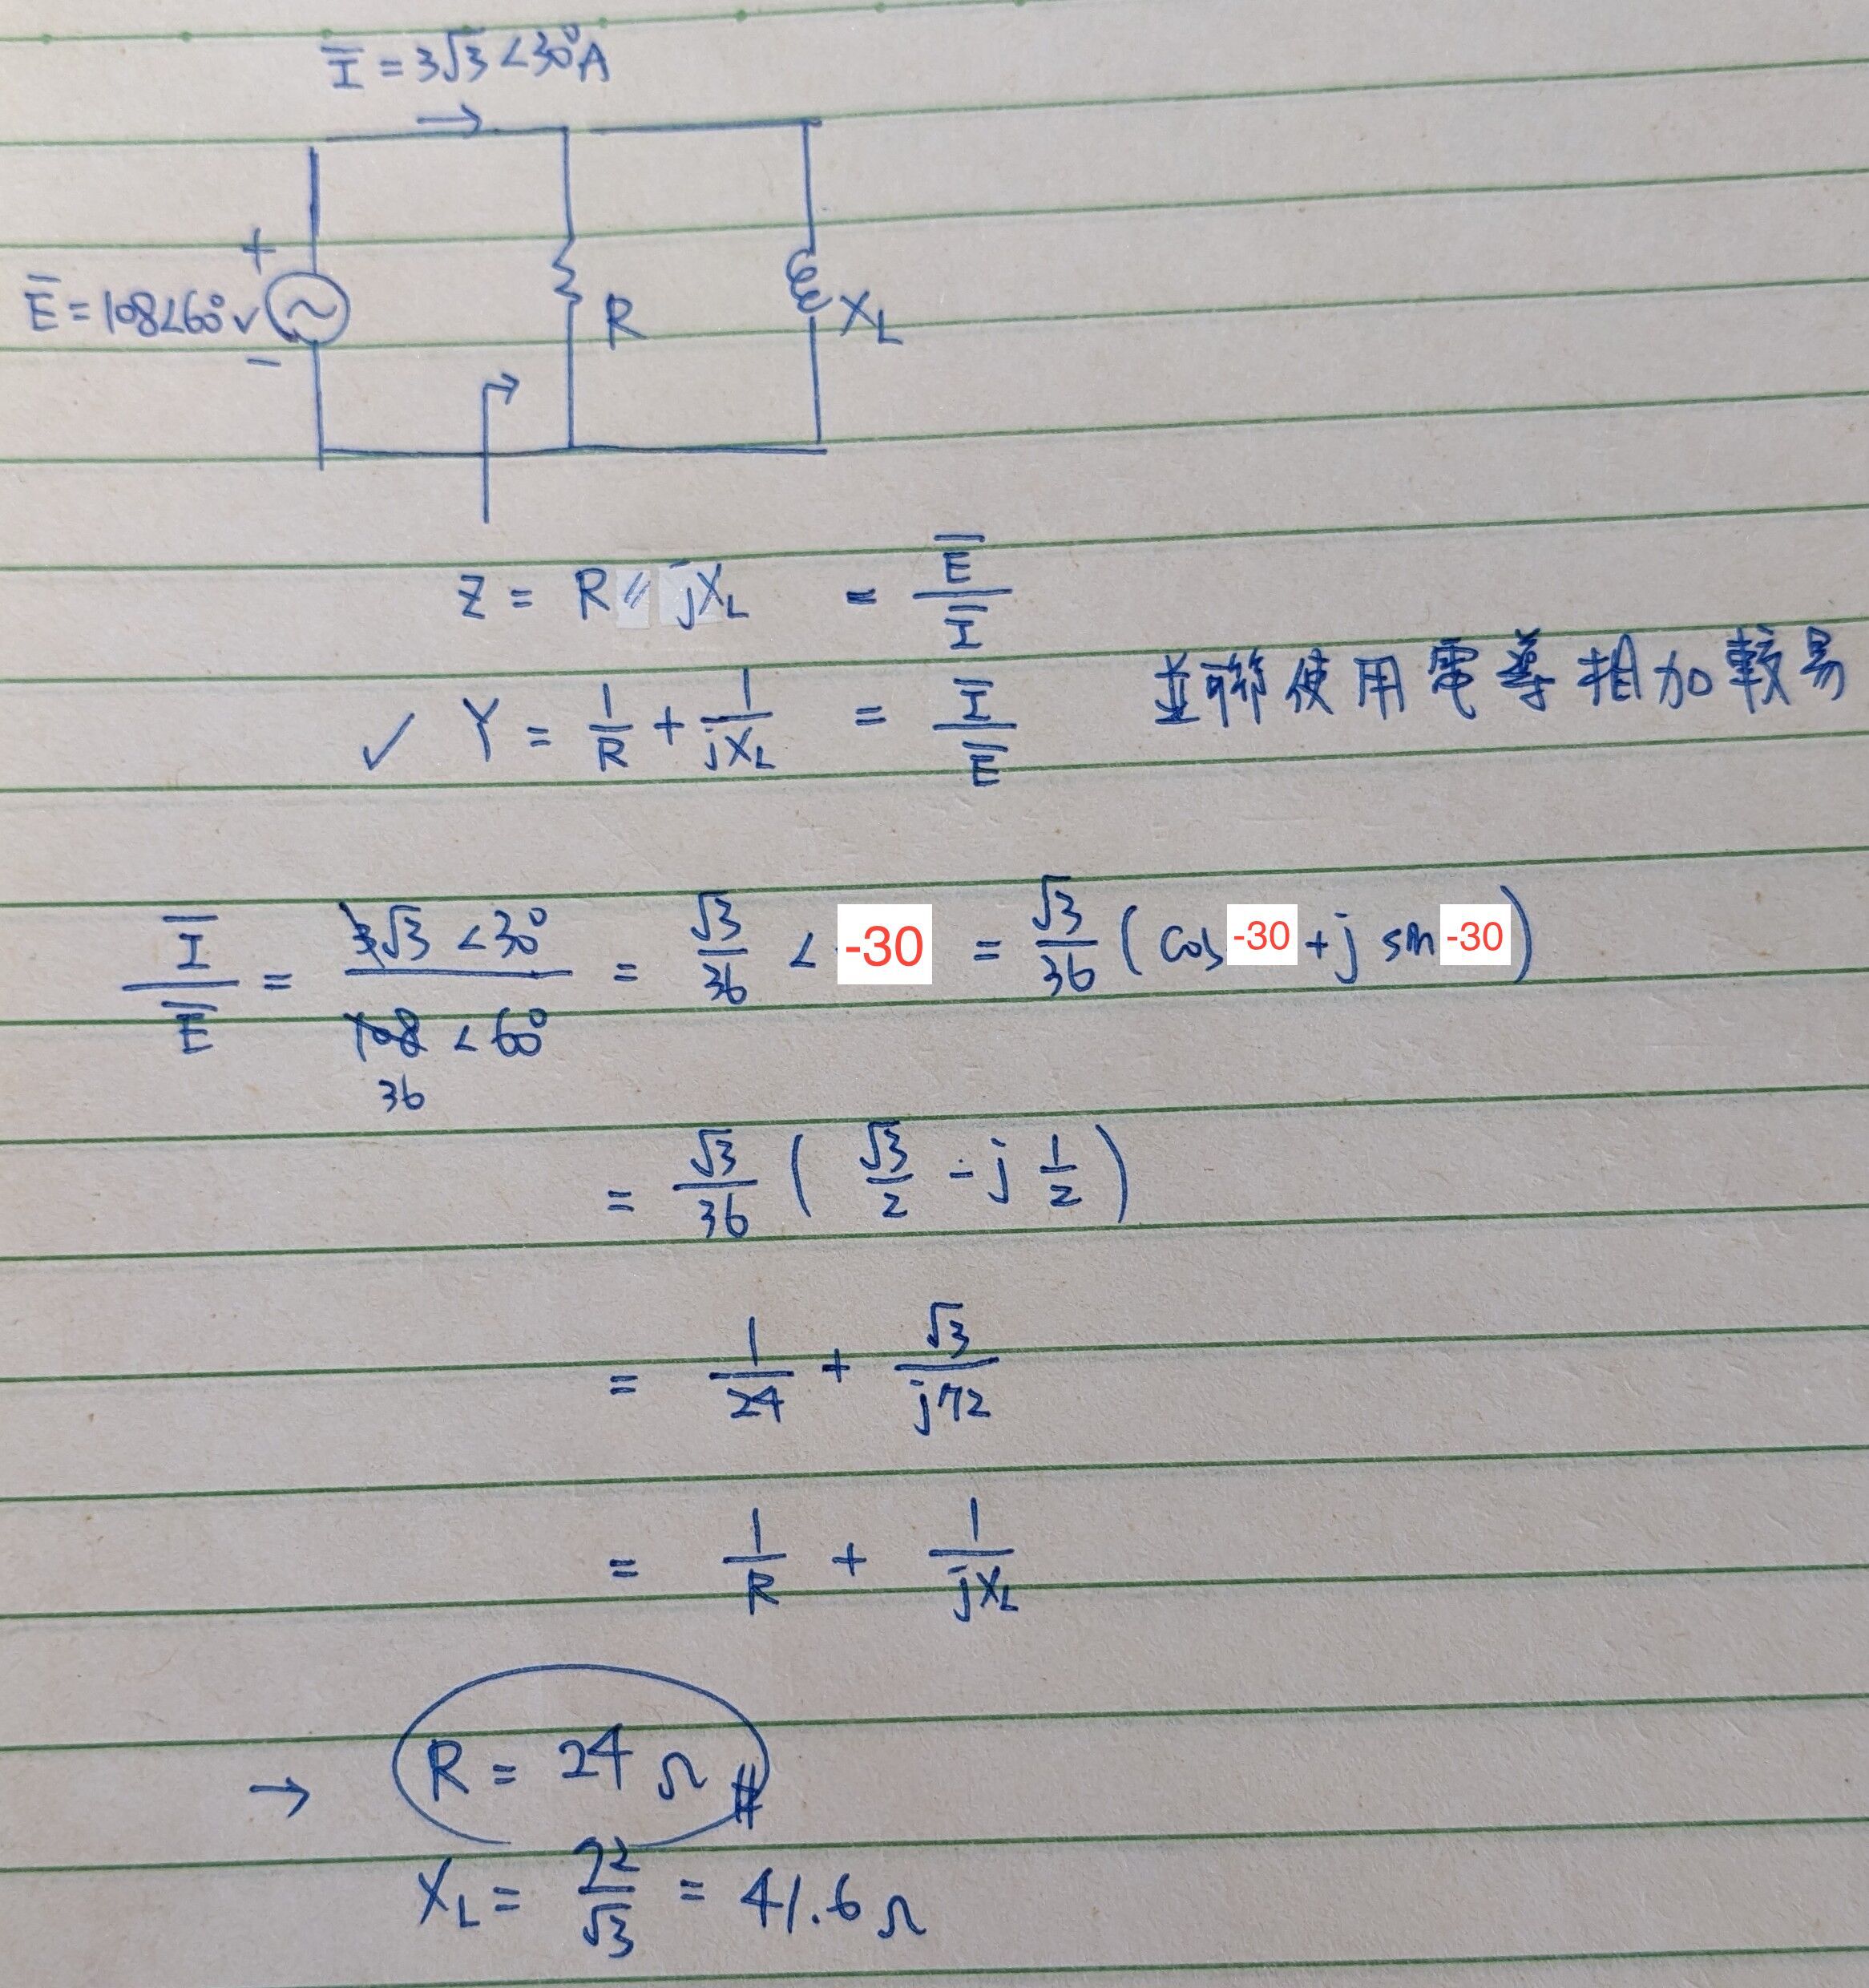 Ī = 3√3 <30° A
+
Ē = 108<60° v
-
R
XL
Z = R // jXL = Ē / Ī
✓ Y = 1/R + 1/jXL = Ī / Ē 並聯使用電導相加較易
Ī / Ē = 3√3 <30° / 108 <60° = √3/36 < -30 = √3/36 ( cos -30 + j sin -30 )
36
= √3/36 ( √3/2 - j 1/2 )
= 1/24 + √3/j72
= 1/R + 1/jXL
→ R = 24 Ω #
XL = 72/√3 = 41.6 Ω